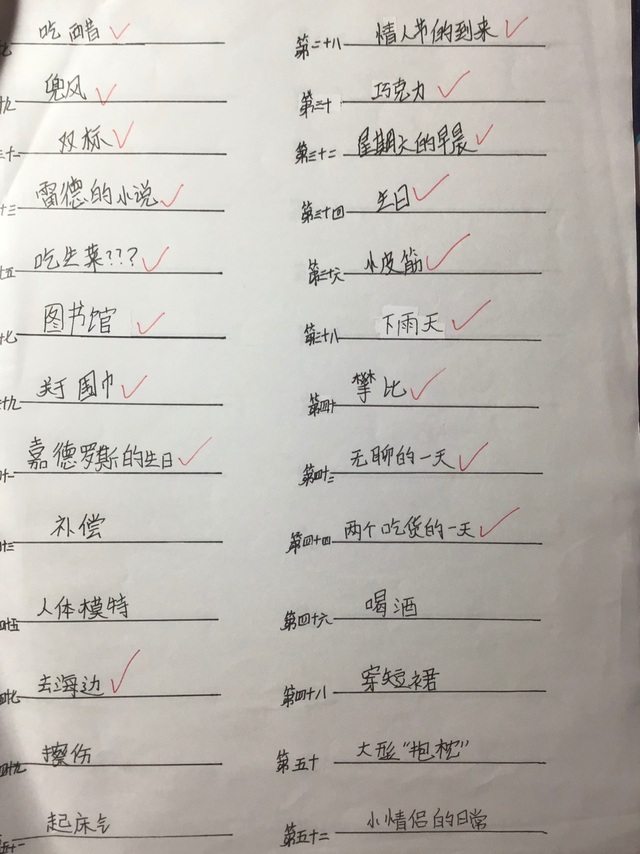 七 吃醋 第二十八 情人节的到来
十九 兜风 第三十 巧克力
三十一 双标 第三十二 星期天的早晨
十三 雷德的小说 第三十四 生日
五 吃生菜??? 第三十六 小皮筋
十七 图书馆 第三十八 下雨天
十九 关于围巾 第四十 攀比
十一 嘉德罗斯的生日 第四十二 无聊的一天
十三 补偿 第四十四 两个吃货的一天
四十五 人体模特 第四十六 喝酒
四十七 去海边 第四十八 穿短裙
四十九 擦伤 第五十 大形“抱枕”
五十一 起床气 第五十二 小情侣的日常